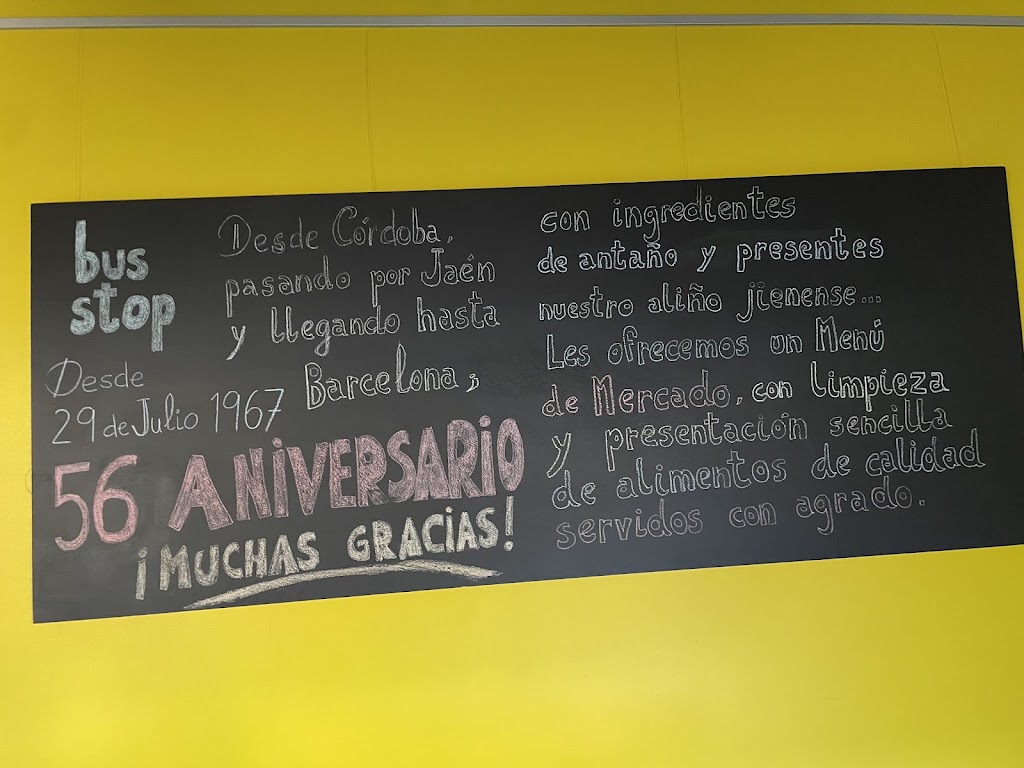 bus
stop
Desde
29 de Julio 1967
Desde Córdoba,
pasando por Jaén
y llegando hasta
Barcelona;
56 ANiVERSARiO
¡MUCHAS GRACiAS!
con ingredientes
de antaño y presentes
nuestro aliño jienense...
Les ofrecemos un Menú
de Mercado, con limpieza
y presentación sencilla
de alimentos de calidad
servidos con agrado.